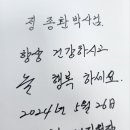 정 종환 박사님.
항상 건강하시고
늘 행복 하세요.
2024년 5월 26일